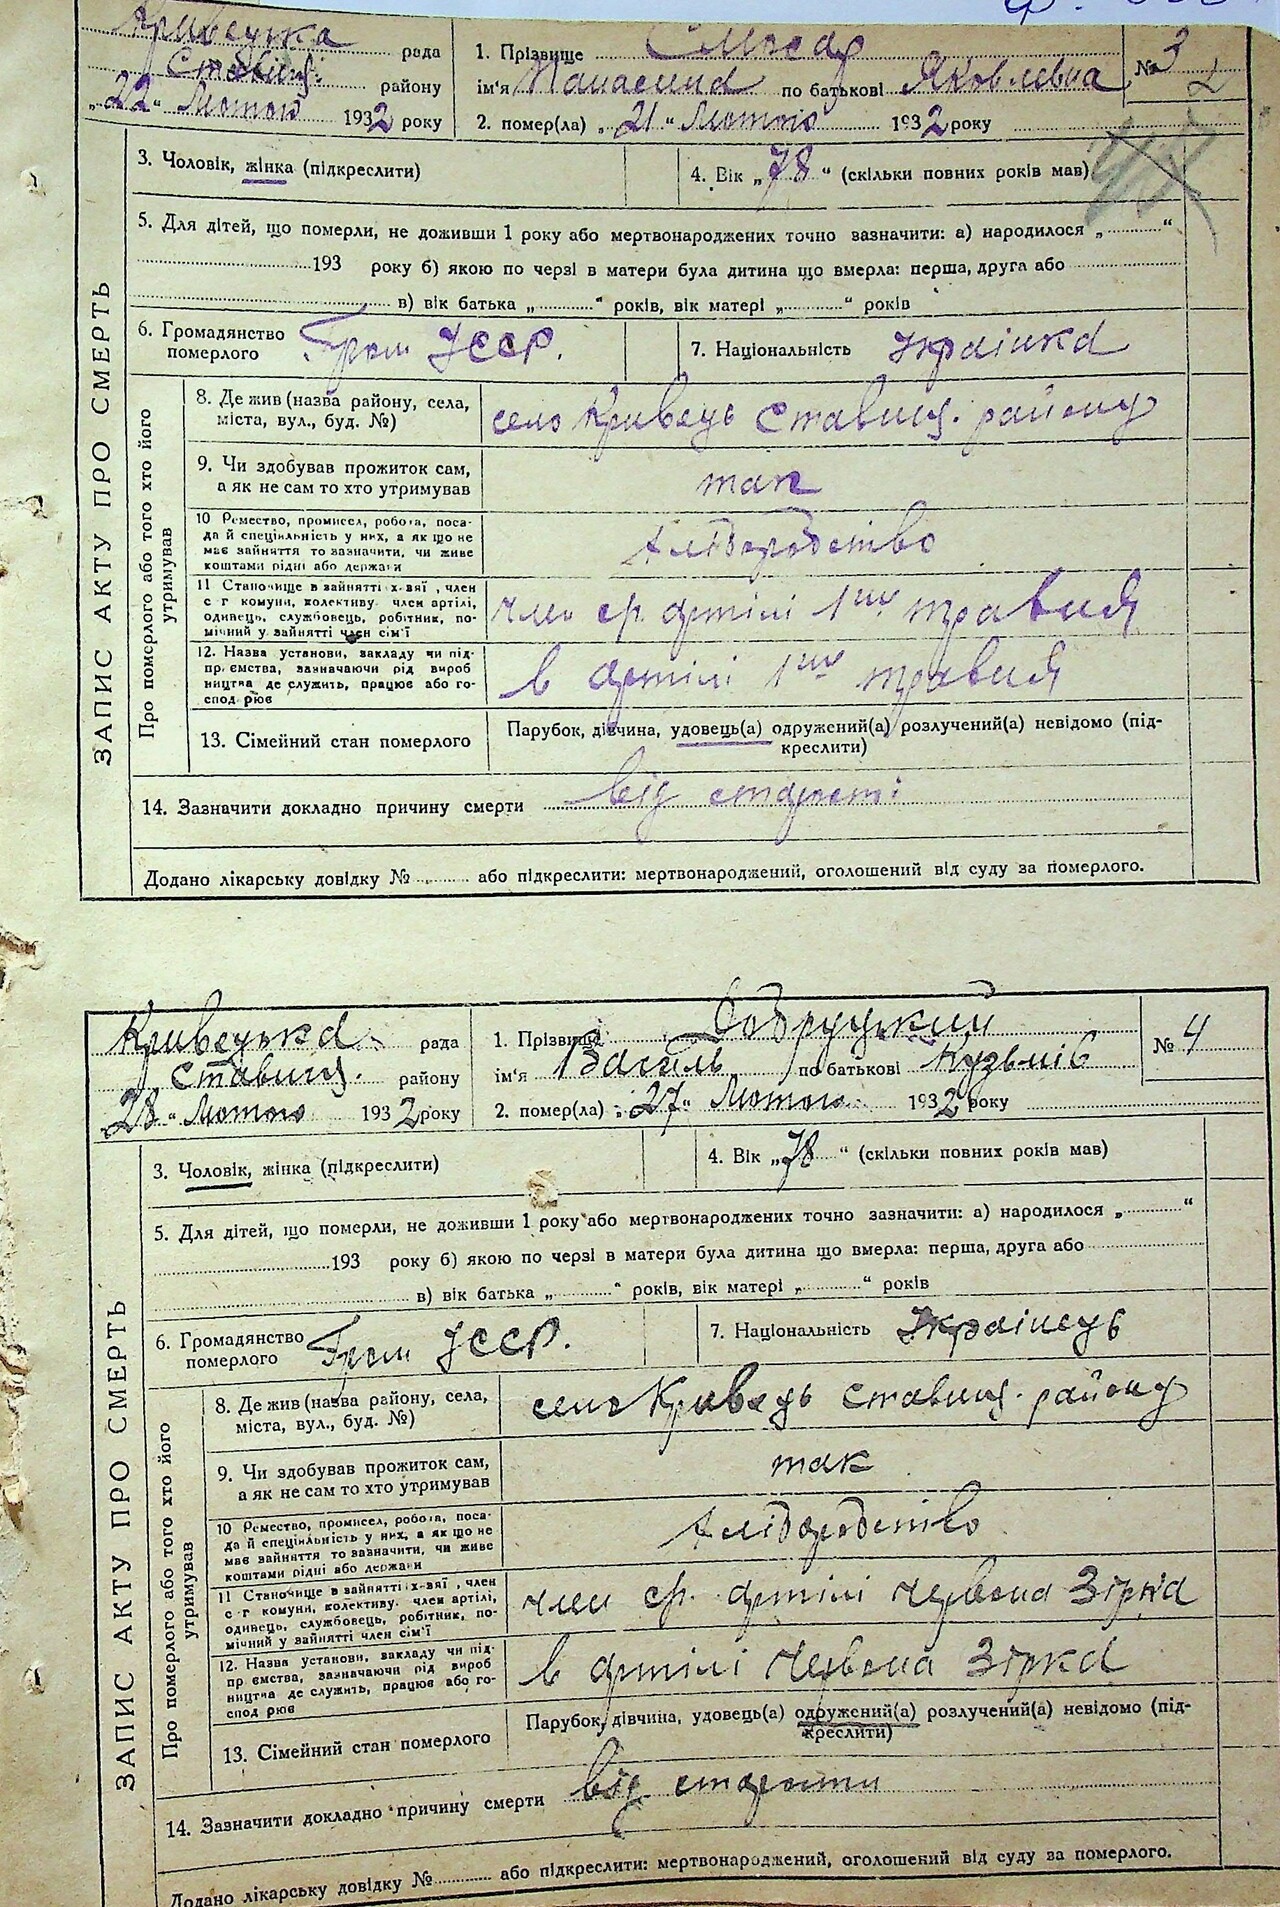 Кривецька рада
Ставищ. району
„22“ Лютого 1932 року
1. Прізвище Слюсар
ім'я Панасина по батькові Яковлевна
2. помер(ла) „21“ Лютого 1932 року
№ 3
ЗАПИС АКТУ ПРО СМЕРТЬ
3. Чоловік, жінка (підкреслити)
4. Вік „78“ (скільки повних років мав)
5. Для дітей, що померли, не доживши 1 року або мертвонароджених точно зазначити: а) народилося „..........“
193 року б) якою по черзі в матери була дитина що вмерла: перша, друга або
в) вік батька „..........“ років, вік матері „..........“ років
6. Громадянство померлого Гром УССР.
7. Національність Українка
Про померлого або того хто його утримував
8. Де жив (назва району, села,
міста, вул., буд. №)
село Кривець Ставищ. району
9. Чи здобував прожиток сам,
а як не сам то хто утримував
так
10 Ремество, промисел, робота, поса-
да й спеціяльність у них, а як що не
має зайняття то зазначити, чи живе
коштами рідні або держави
Хліборобство
11 Становище в зайнятті х-ві, член
с г комуни, колективу член артілі,
одинець, службовець, робітник, по-
мічний у зайнятті член сім'ї
член ср. артілі 1ше травня
12. Назва установи, закладу чи під-
пр ємства, зазначаючи рід вироб
ництва де служить, працює або го-
спод рює
в артілі 1ше травня
13. Сімейний стан померлого
Парубок, дівчина, удовець(а) одружений(а) розлучений(а) невідомо (під-
креслити)
14. Зазначити докладно причину смерти від старості
Додано лікарську довідку № .......... або підкреслити: мертвонароджений, оголошений від суду за померлого.
Кривецька рада
Ставищ. району
28 „ Лютого 1932 року
1. Прізвище Добруцкий
ім'я Василь по батькові Кузьмів
2. помер(ла) „27“ Лютого 1932 року
№ 4
ЗАПИС АКТУ ПРО СМЕРТЬ
3. Чоловік, жінка (підкреслити)
4. Вік „78“ (скільки повних років мав)
5. Для дітей, що померли, не доживши 1 року або мертвонароджених точно зазначити: а) народилося „..........“
193 року б) якою по черзі в матери була дитина що вмерла: перша, друга або
в) вік батька „..........“ років, вік матері „..........“ років
6. Громадянство померлого Гром УССР.
7. Національність Українець
Про померлого або того хто його утримував
8. Де жив (назва району, села,
міста, вул., буд. №)
село Кривець Ставищ. району
9. Чи здобував прожиток сам,
а як не сам то хто утримував
так
10 Ремество, промисел, робота, поса-
да й спеціяльність у них, а як що не
має зайняття то зазначити, чи живе
коштами рідні або держави
Хліборобство
11 Становище в зайнятті х-ві, член
с г комуни, колективу член артілі,
одинець, службовець, робітник, по-
мічний у зайнятті член сім'ї
член ср. артілі Червона Зірка
12. Назва установи, закладу чи під-
пр ємства, зазначаючи рід вироб
ництва де служить, працює або го-
спод рює
в артілі Червона Зірка
13. Сімейний стан померлого
Парубок, дівчина, удовець(а) одружений(а) розлучений(а) невідомо (під-
креслити)
14. Зазначити докладно причину смерти від старости
Додано лікарську довідку № .......... або підкреслити: мертвонароджений, оголошений від суду за померлого.